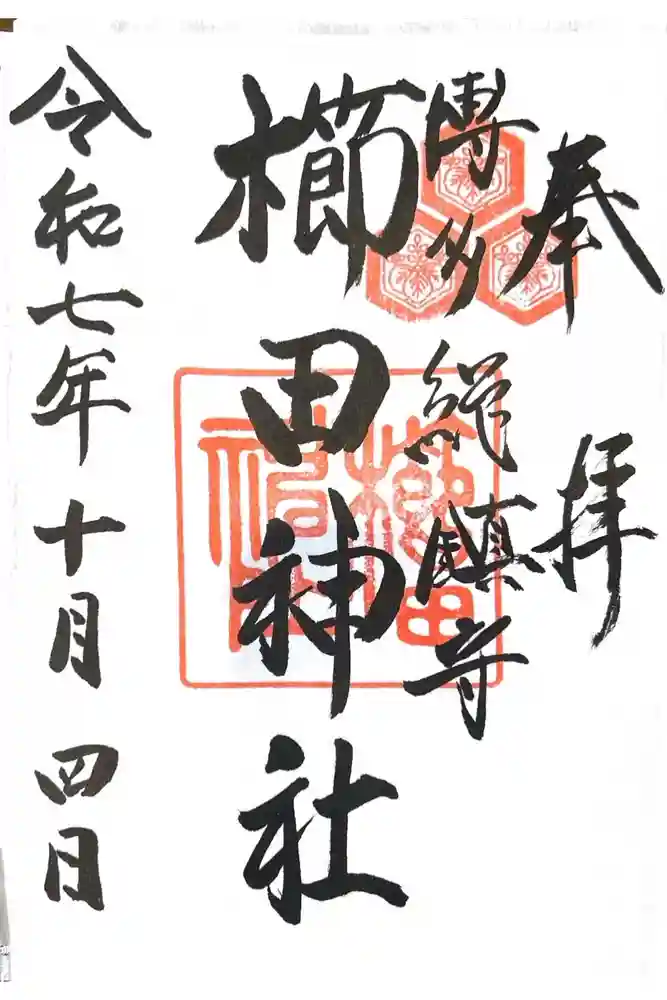 奉拝
博多総鎮守
櫛田神社
令和七年十月四日
櫛田神社